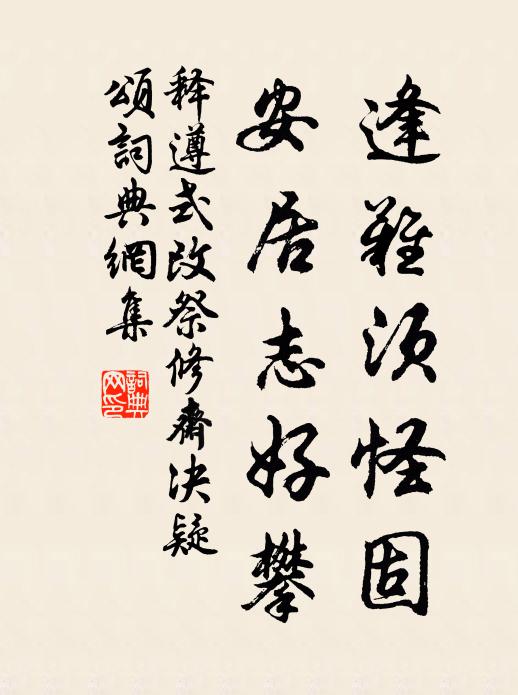 逢難須怪固
安居志好攀
释遵式改祭修齋决疑
頌詞典網集
詞典
网印